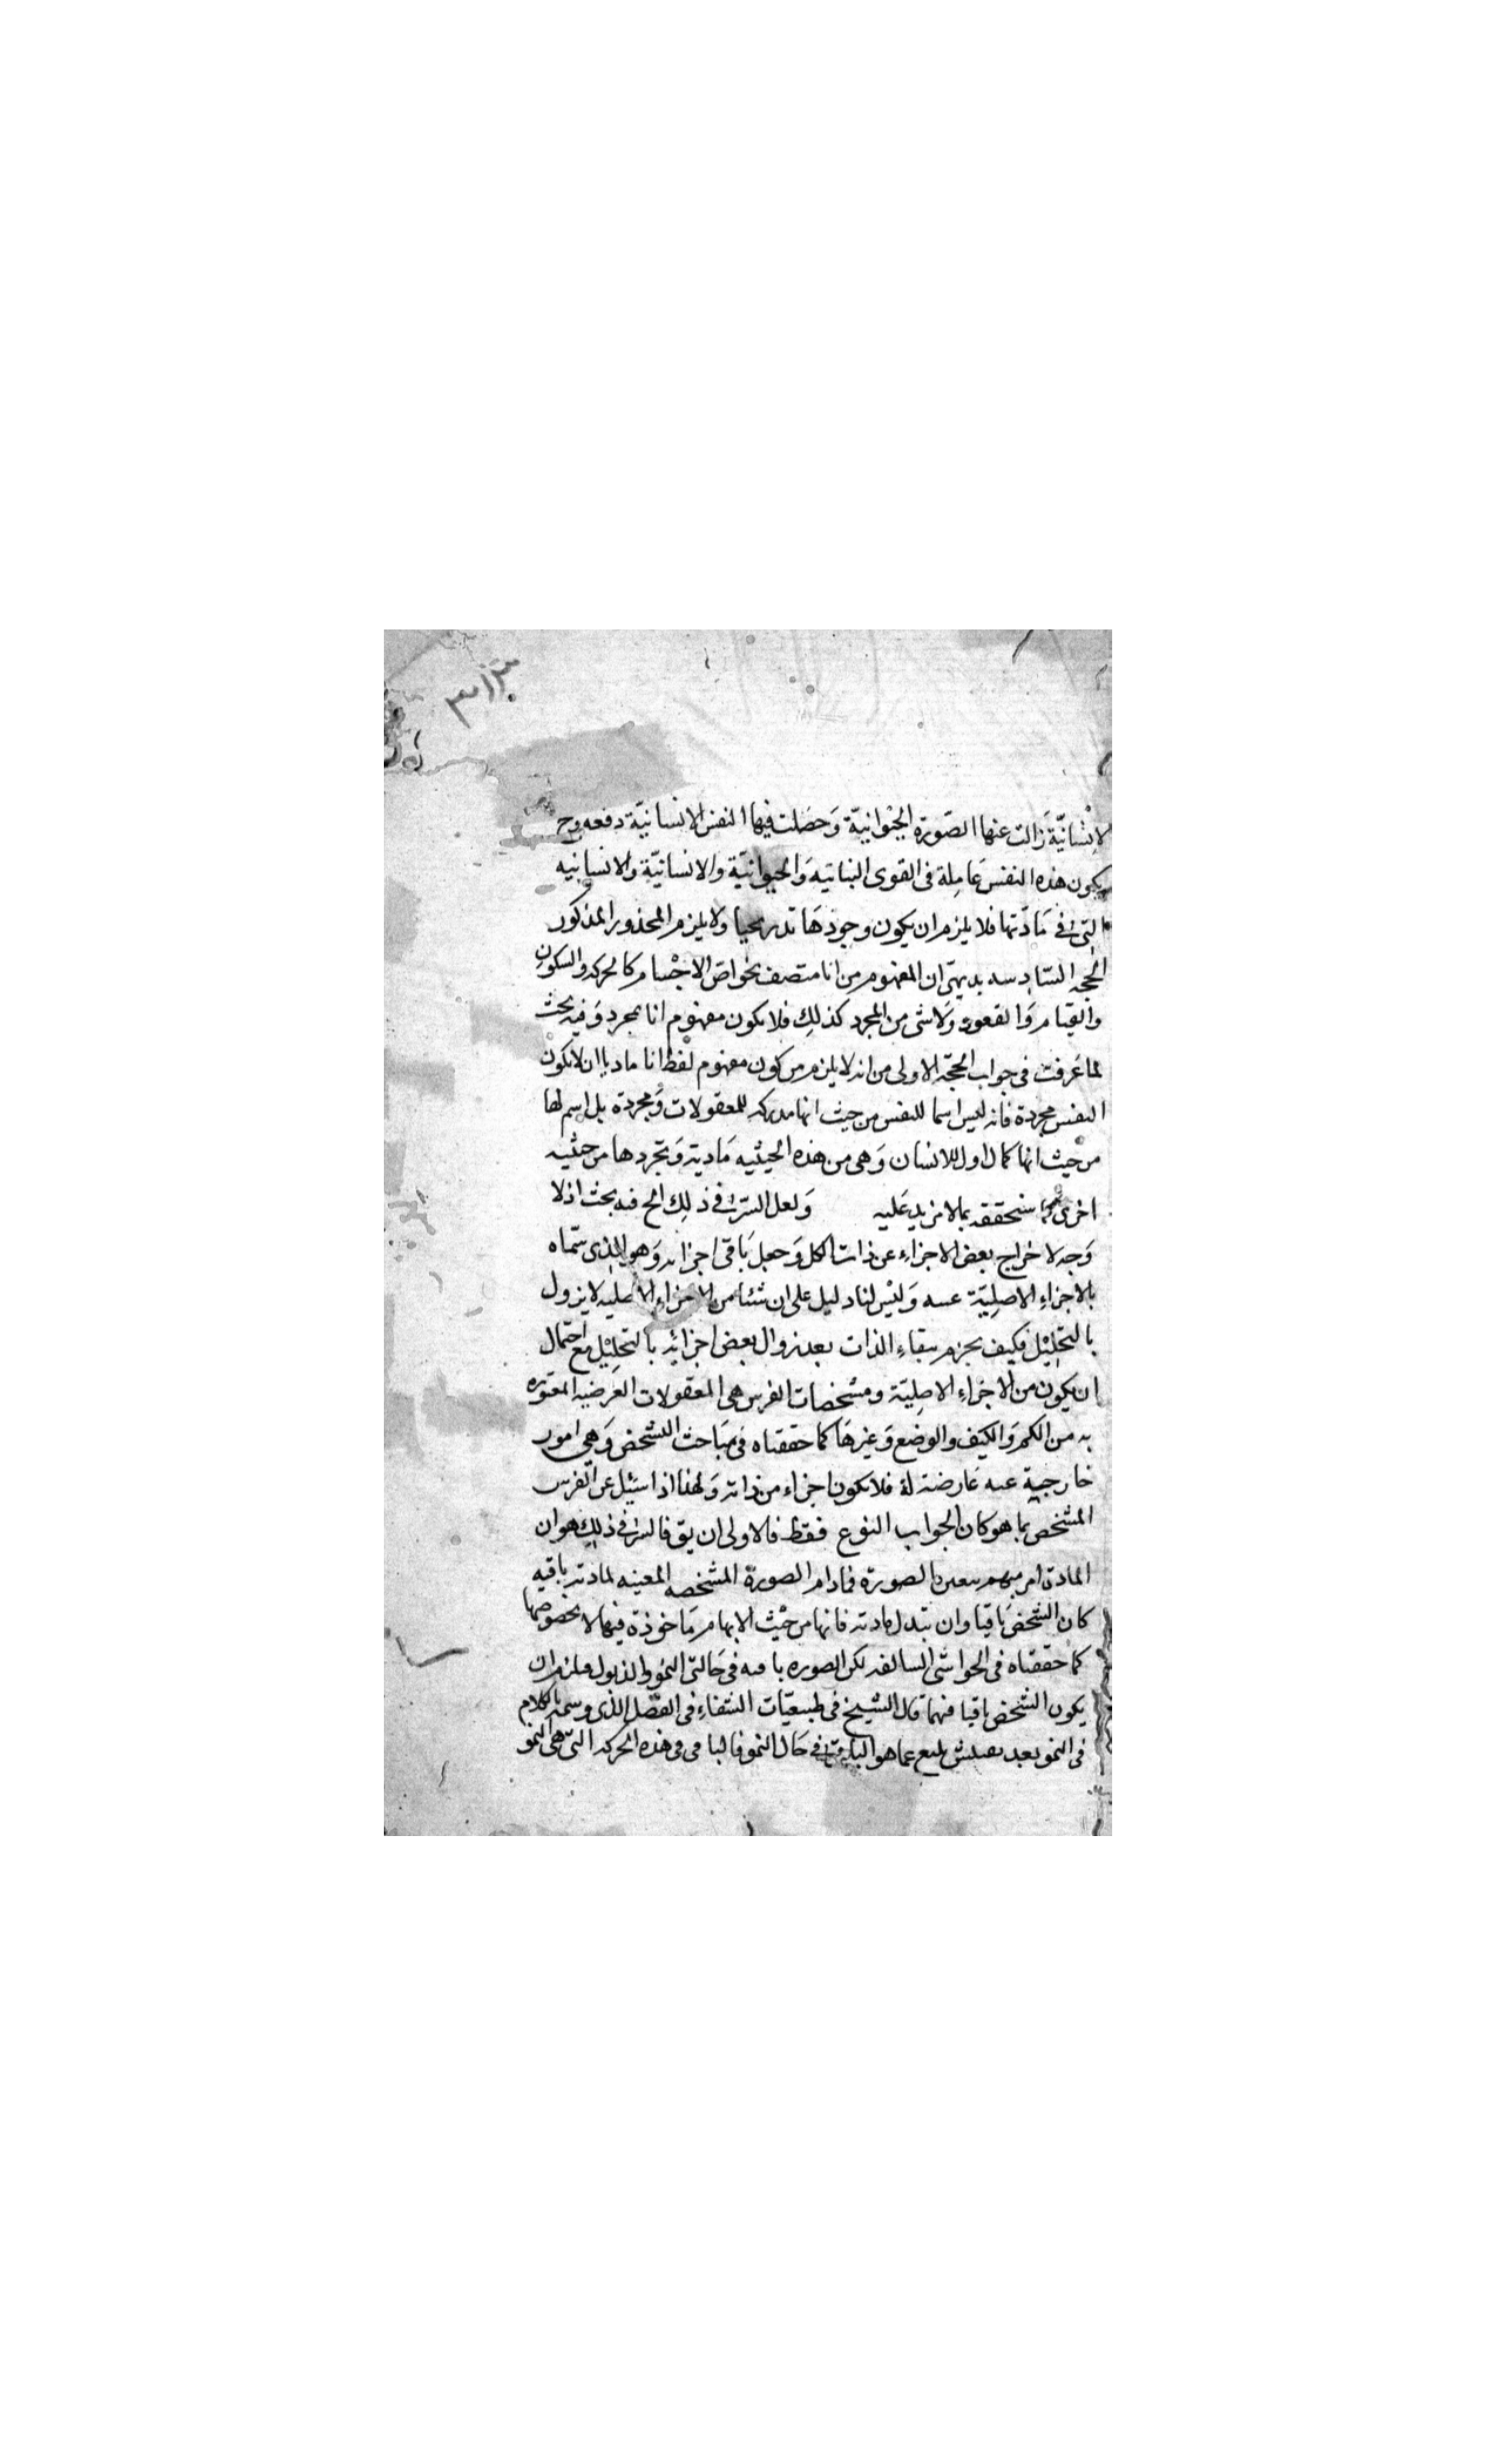 ٣١٣
الانسانيّة زالت عنها الصّورة الحيوانيّة وَحصَلت فيها النفس الانسانيّة دفعه وح
يكون هذه النفس عَاملة فى القوى النباتيه وَالحيوانيّة والانسانيّة والانسانيه
التى فى مَادّتها فلا يلزم ان يكون وجودهَا تدريحيا ولا يلزم المحذور المذكور
الحجه السّادسه بديهىّ ان المفهوم من انا متصف بخواصّ الاجْسام كالحركه والسكون
والقيام وَالقعود وَلاشى من المجرد كذلِك فلا يكون مفهوم انا بمجرد وَفيه بحث
لما عَرفت فى جواب الحجّه الاولى من انه لا يلزم من كون مفهوم لفظ انا ماديا ان لا يكون
النفس مجردة فانه ليس اسما للنفس من حيث انها مدركه للمعقولات وَمجردة بل اسم لها
من حيث انها كمال اول للانسان وَهى من هذه الحيثيه مَادية وَتجردها من حثيه
اخرى كما سنحققه بما لا مزيد عَليه وَلعل السّرّ فى ذلِك الخ فيه بحث اذ لا
وَجه لاخراج بعض الاجزاء عن ذات الكل وَجعل بَاقى اجزائه وَهو الذى سمّاه
بالاجزاءِ الاصلِيّة عينه وَليْس لنا دليل على ان شئا من الاجزاءِ الاصليه لا يزول
بالتحلِيْل فكيف يجزم ببقاءِ الذات بعد زوال بعض اجزائهِ بالتحلِيْل مع احتمال
ان يكون من الاجزاءِ الاصلِيّة ومشخصات الفرس هى المعقولات العرضيه المعتوره
به من الكم وَالكيف والوضع وَغيرهَا كما حققناه فى مبَاحث التشخص وَهى امور
خارجية عنه عَارضة لهُ فلا يكون اجزاء من ذاته وَلهذا اذا سئِل عن الفرس
المشخص بما هو كان الجواب النوع فقط فالاولى ان يق فالسّر فى ذلِك هو ان
المادة امر مبهم يتعين بالصورة فمادام الصورة المشخصه المعينه لمادته باقيه
كان الشخص بَاقيا وان تبدل مادته فانها من حيْث الابهام مَاخوذة فيها لا بخصوصها
كما حققناه فى الحواشى السالفه لكن الصوره باقيه فى حَالتى النموّ والذبول فيلزم ان
يكون الشخص باقيا فيهما قال الشيخ فى طبيعيّات الشفاءِ فى الفصْل الذى وسمه بالكلام
فى النمو بعد عما هو الباقى فى حَال النمو فالباقى فى هذه الحركه التى هى النمو